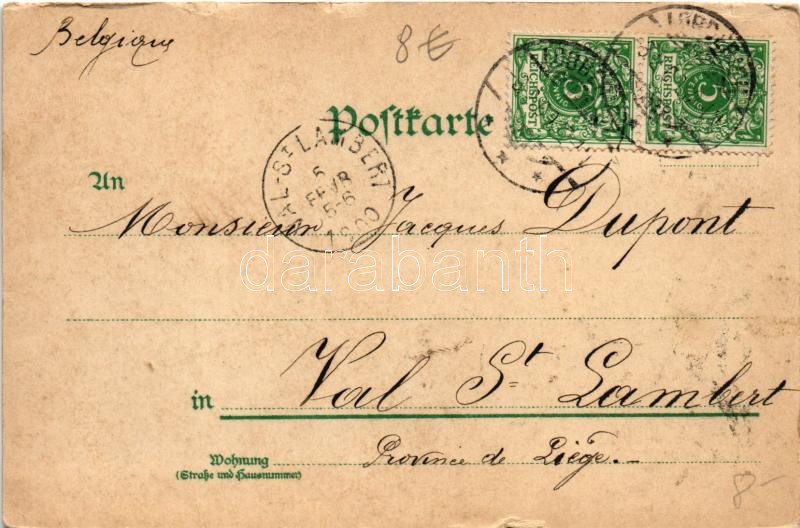 Belgique
8 €
5
REICHSPOST
5
REICHSPOST
Postkarte
VAL-ST LAMBERT
6
FEVR
5-6
1900
An
Monsieur Jacques Dupont
darabanth
in Val St Lambert
Wohnung
(Straße und Hausnummer)
Province de Liége.-
8-